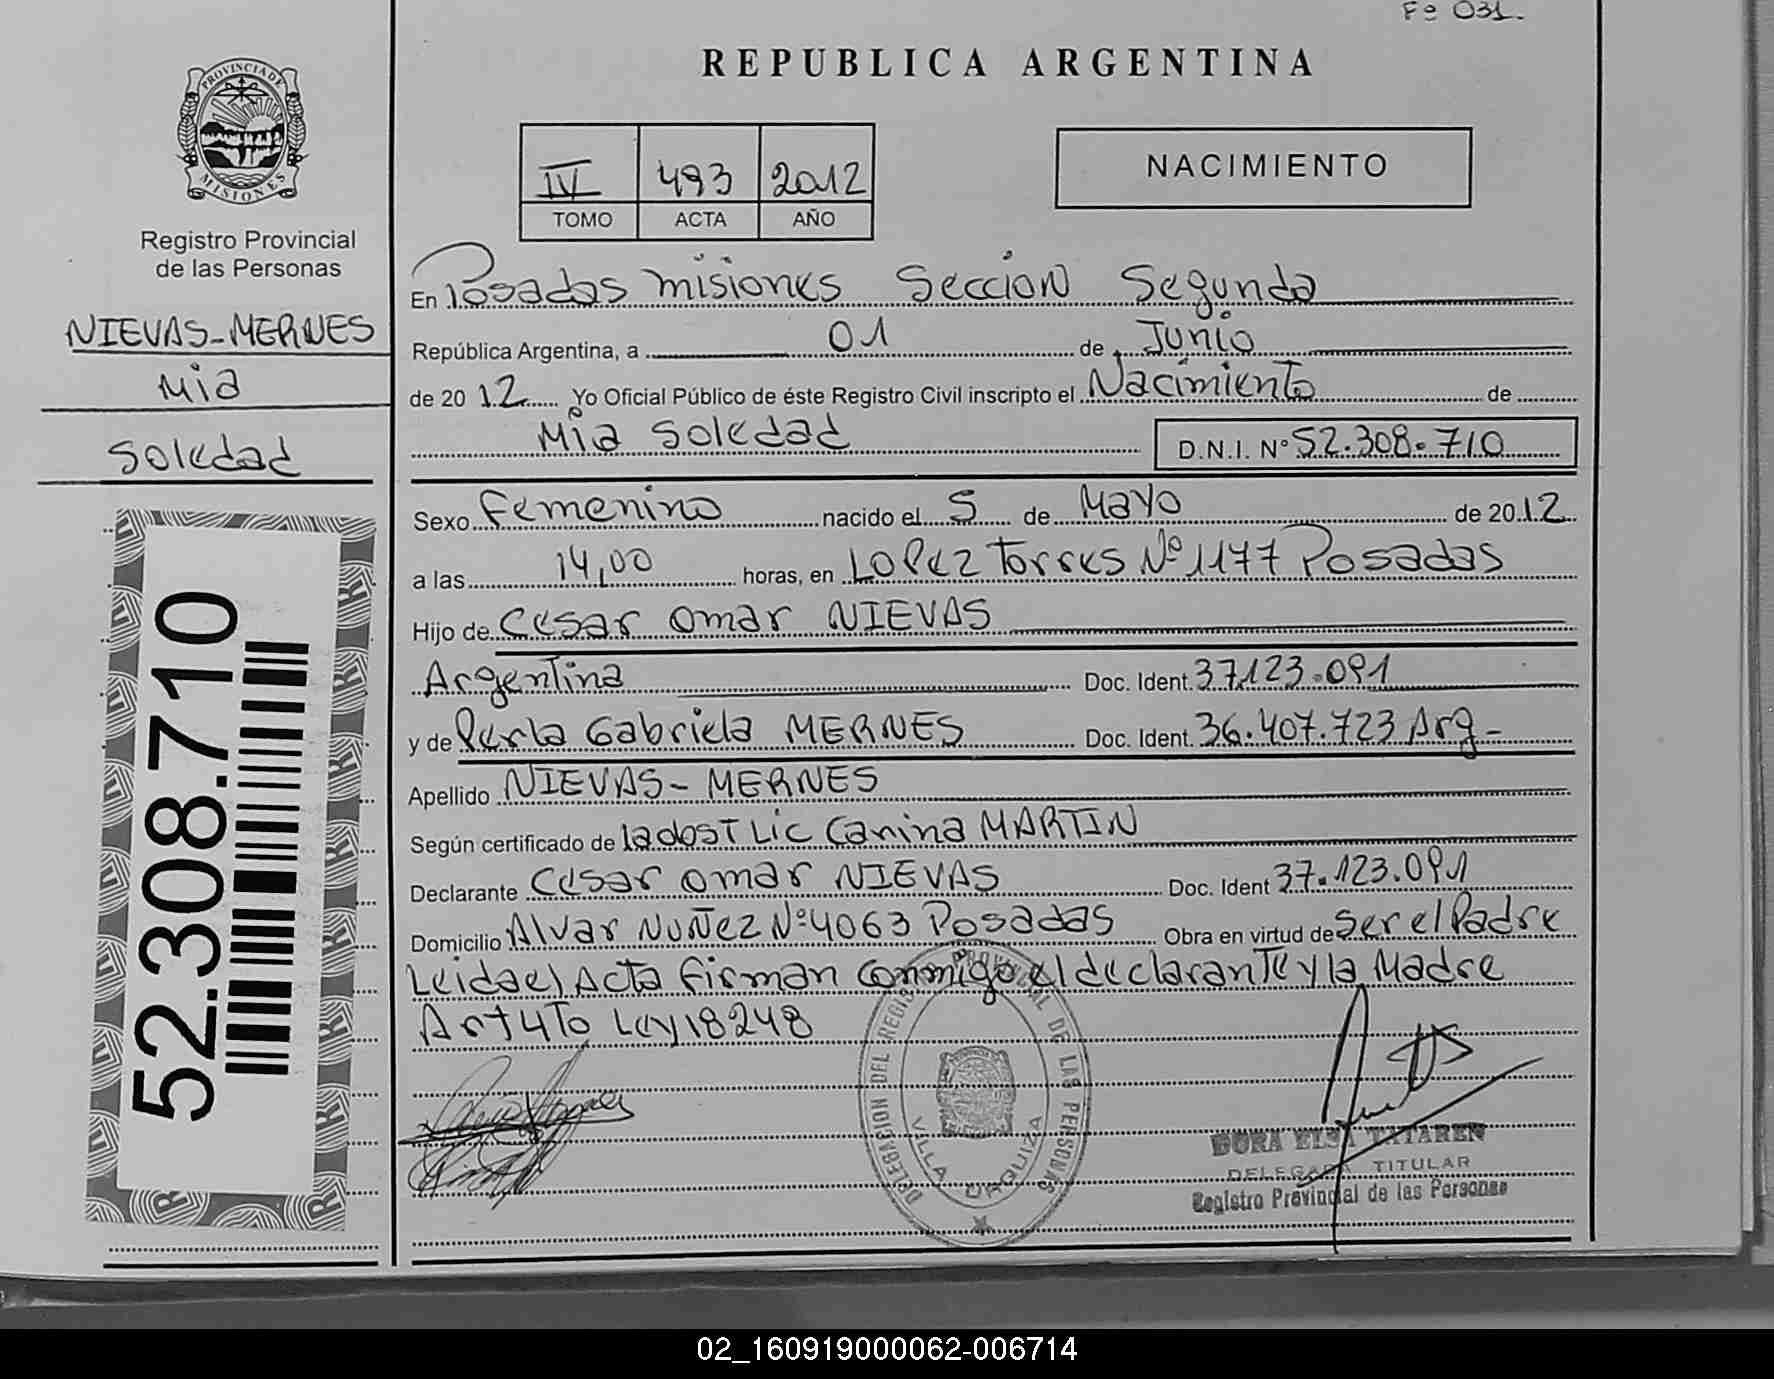 Fº 031.
REPUBLICA ARGENTINA
PROVINCIA DE MISIONES
Registro Provincial
de las Personas
IV 493 2012
TOMO ACTA AÑO
NACIMIENTO
NIEVAS-MERNES
Mia
Soledad
52.308.710
En Posadas misiones Seccion Segunda
República Argentina, a 01 de Junio
de 2012 Yo Oficial Público de éste Registro Civil inscripto el Nacimiento de
Mia Soledad D.N.I. Nº 52.308.710
Sexo Femenino nacido el 5 de Mayo de 2012
a las 14,00 horas, en Lopez Torres Nº 1177 Posadas
Hijo de Cesar Omar NIEVAS
Argentina Doc. Ident. 37.123.091
y de Perla Gabriela MERNES Doc. Ident. 36.407.723 Arg-
Apellido NIEVAS-MERNES
Según certificado de la obst Lic Canina MARTIN
Declarante Cesar Omar NIEVAS Doc. Ident 37.123.091
Domicilio Alvar Nuñez Nº 4063 Posadas Obra en virtud de ser el Padre
Leida el Acta firman conmigo el declarante y la Madre
Art 4to Ley 18248
DELEGACION DEL REGISTRO PROVINCIAL DE LAS PERSONAS
VILLA URQUIZA
DORA ELSA TATAREN
DELEGADA TITULAR
Registro Provincial de las Personas
02_160919000062-006714